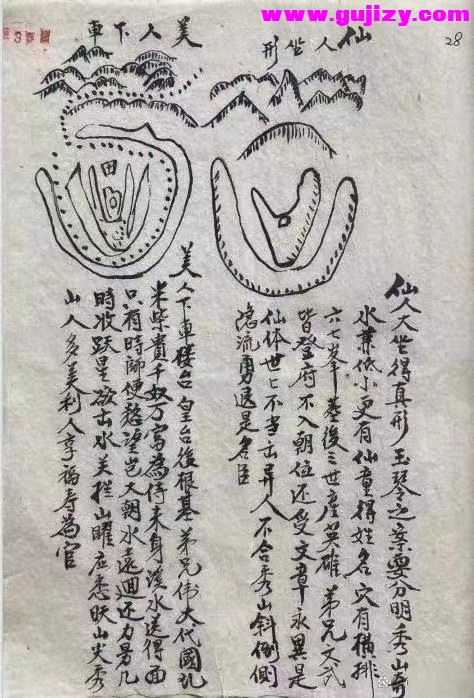 www.gujizy.com
28
仙人坐形
美人下車
仙人大坐得真形玉琴之案要分明秀山
水葉低小更有仙童得姓名穴有橫排
六七峯基後三世産英雄弟兄文武
皆登府不入朝位还受文章永異是
仙体世匕不当出异人不合秀山斜倒側
流勇退是名臣
美人下車楼台皇台後根基弟兄伟大代國
米柴貴千奴万為侍来身溪水送得曲
只有時師使愁望岂大朝水遠迴还力另几
時收跃星欲出水美山曜应悉山尖秀
山人多美利人享福寿為官